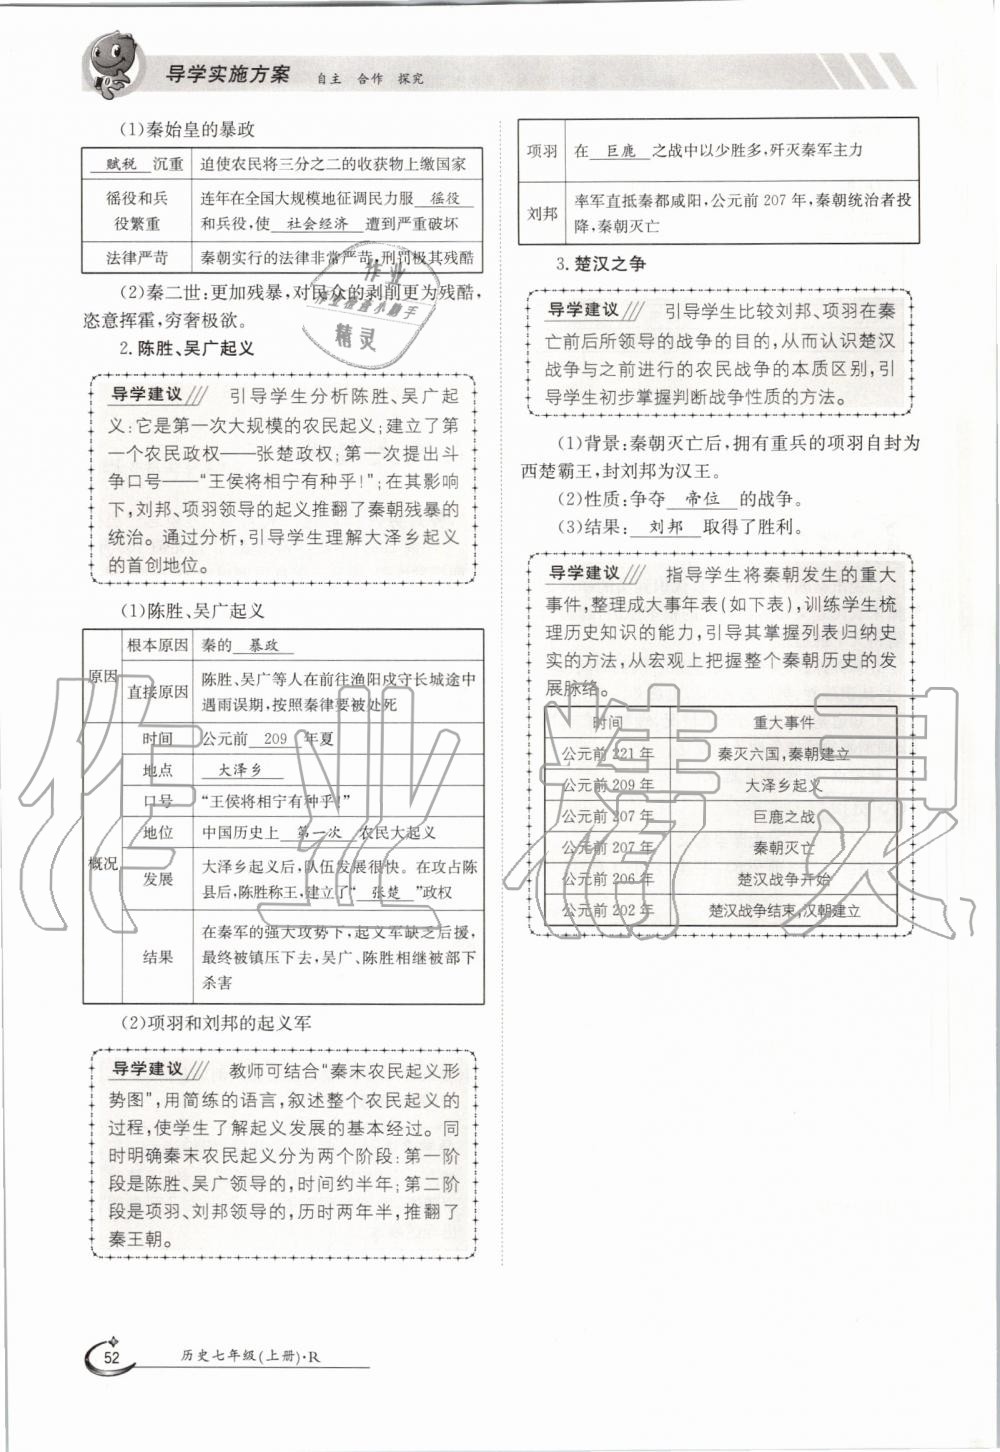 导学实施方案 自主 合作 探究
(1)秦始皇的暴政
赋税 沉重 迫使农民将三分之二的收获物上缴国家
徭役和兵 连年在全国大规模地征调民力服 徭役
役繁重 和兵役,使 社会经济 遭到严重破坏
法律严苛 秦朝实行的法律非常严苛,刑罚极其残酷
(2)秦二世:更加残暴,对民众的剥削更为残酷,
恣意挥霍,穷奢极欲。
2. 陈胜、吴广起义
导学建议 引导学生分析陈胜、吴广起
义:它是第一次大规模的农民起义;建立了第
一个农民政权——张楚政权;第一次提出斗
争口号——“王侯将相宁有种乎!”;在其影响
下,刘邦、项羽领导的起义推翻了秦朝残暴的
统治。通过分析,引导学生理解大泽乡起义
的首创地位。
(1)陈胜、吴广起义
原因
根本原因 秦的 暴政
直接原因 陈胜、吴广等人在前往渔阳戍守长城途中
遇雨误期,按照秦律要被处死
概况
时间 公元前 209 年夏
地点 大泽乡
口号 “王侯将相宁有种乎!”
地位 中国历史上 第一次 农民大起义
发展 大泽乡起义后,队伍发展很快。在攻占陈
县后,陈胜称王,建立了“ 张楚 ”政权
结果 在秦军的强大攻势下,起义军缺乏后援,
最终被镇压下去,吴广、陈胜相继被部下
杀害
(2)项羽和刘邦的起义军
导学建议 教师可结合“秦末农民起义形
势图”,用简练的语言,叙述整个农民起义的
过程,使学生了解起义发展的基本经过。同
时明确秦末农民起义分为两个阶段:第一阶
段是陈胜、吴广领导的,时间约半年;第二阶
段是项羽、刘邦领导的,历时两年半,推翻了
秦王朝。
项羽 在 巨鹿 之战中以少胜多,歼灭秦军主力
刘邦 率军直抵秦都咸阳,公元前 207 年,秦朝统治者投
降,秦朝灭亡
3. 楚汉之争
导学建议 引导学生比较刘邦、项羽在秦
亡前后所领导的战争的目的,从而认识楚汉
战争与之前进行的农民战争的本质区别,引
导学生初步掌握判断战争性质的方法。
(1)背景:秦朝灭亡后,拥有重兵的项羽自封为
西楚霸王,封刘邦为汉王。
(2)性质:争夺 帝位 的战争。
(3)结果: 刘邦 取得了胜利。
导学建议 指导学生将秦朝发生的重大
事件,整理成大事年表(如下表),训练学生梳
理历史知识的能力,引导其掌握列表归纳史
实的方法,从宏观上把握整个秦朝历史的发
展脉络。
时间 重大事件
公元前 221 年 秦灭六国,秦朝建立
公元前 209 年 大泽乡起义
公元前 207 年 巨鹿之战
公元前 207 年 秦朝灭亡
公元前 206 年 楚汉战争开始
公元前 202 年 楚汉战争结束,汉朝建立
作业
精灵
作业精灵
52 历史七年级(上册)·R